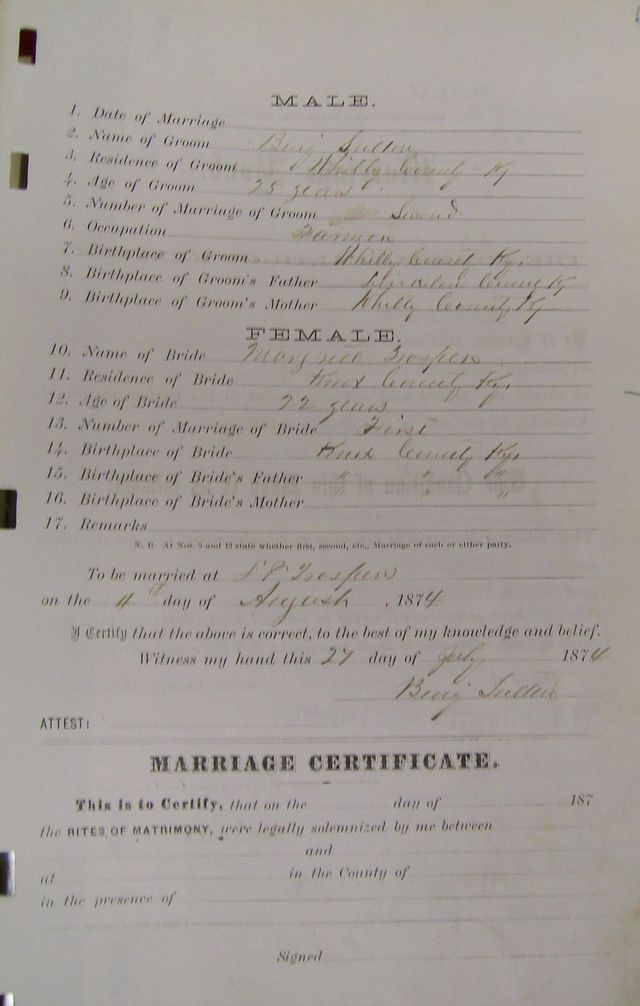 MALE.
1. Date of Marriage
2. Name of Groom Benj Sutten
3. Residence of Groom Whitly County Ky
4. Age of Groom 25 years
5. Number of Marriage of Groom Second
6. Occupation Farmer
7. Birthplace of Groom Whitly County Ky,
8. Birthplace of Groom's Father County Ky
9. Birthplace of Groom's Mother Whitly County Ky
FEMALE.
10. Name of Bride Trosper
11. Residence of Bride Knox County Ky,
12. Age of Bride 22 years
13. Number of Marriage of Bride First
14. Birthplace of Bride Knox County Ky,
15. Birthplace of Bride's Father " " "
16. Birthplace of Bride's Mother " "
17. Remarks
N. B. At Nos. 5 and 13 state whether first, second, etc., Marriage of each or either party.
To be married at Trospers
on the day of August, 1874
I Certify that the above is correct, to the best of my knowledge and belief.
Witness my hand this 27 day of July 1874
Benj Sutten
ATTEST:
MARRIAGE CERTIFICATE.
This is to Certify, that on the day of 187
the RITES OF MATRIMONY, were legally solemnized by me between
and
at in the County of
in the presence of
Signed